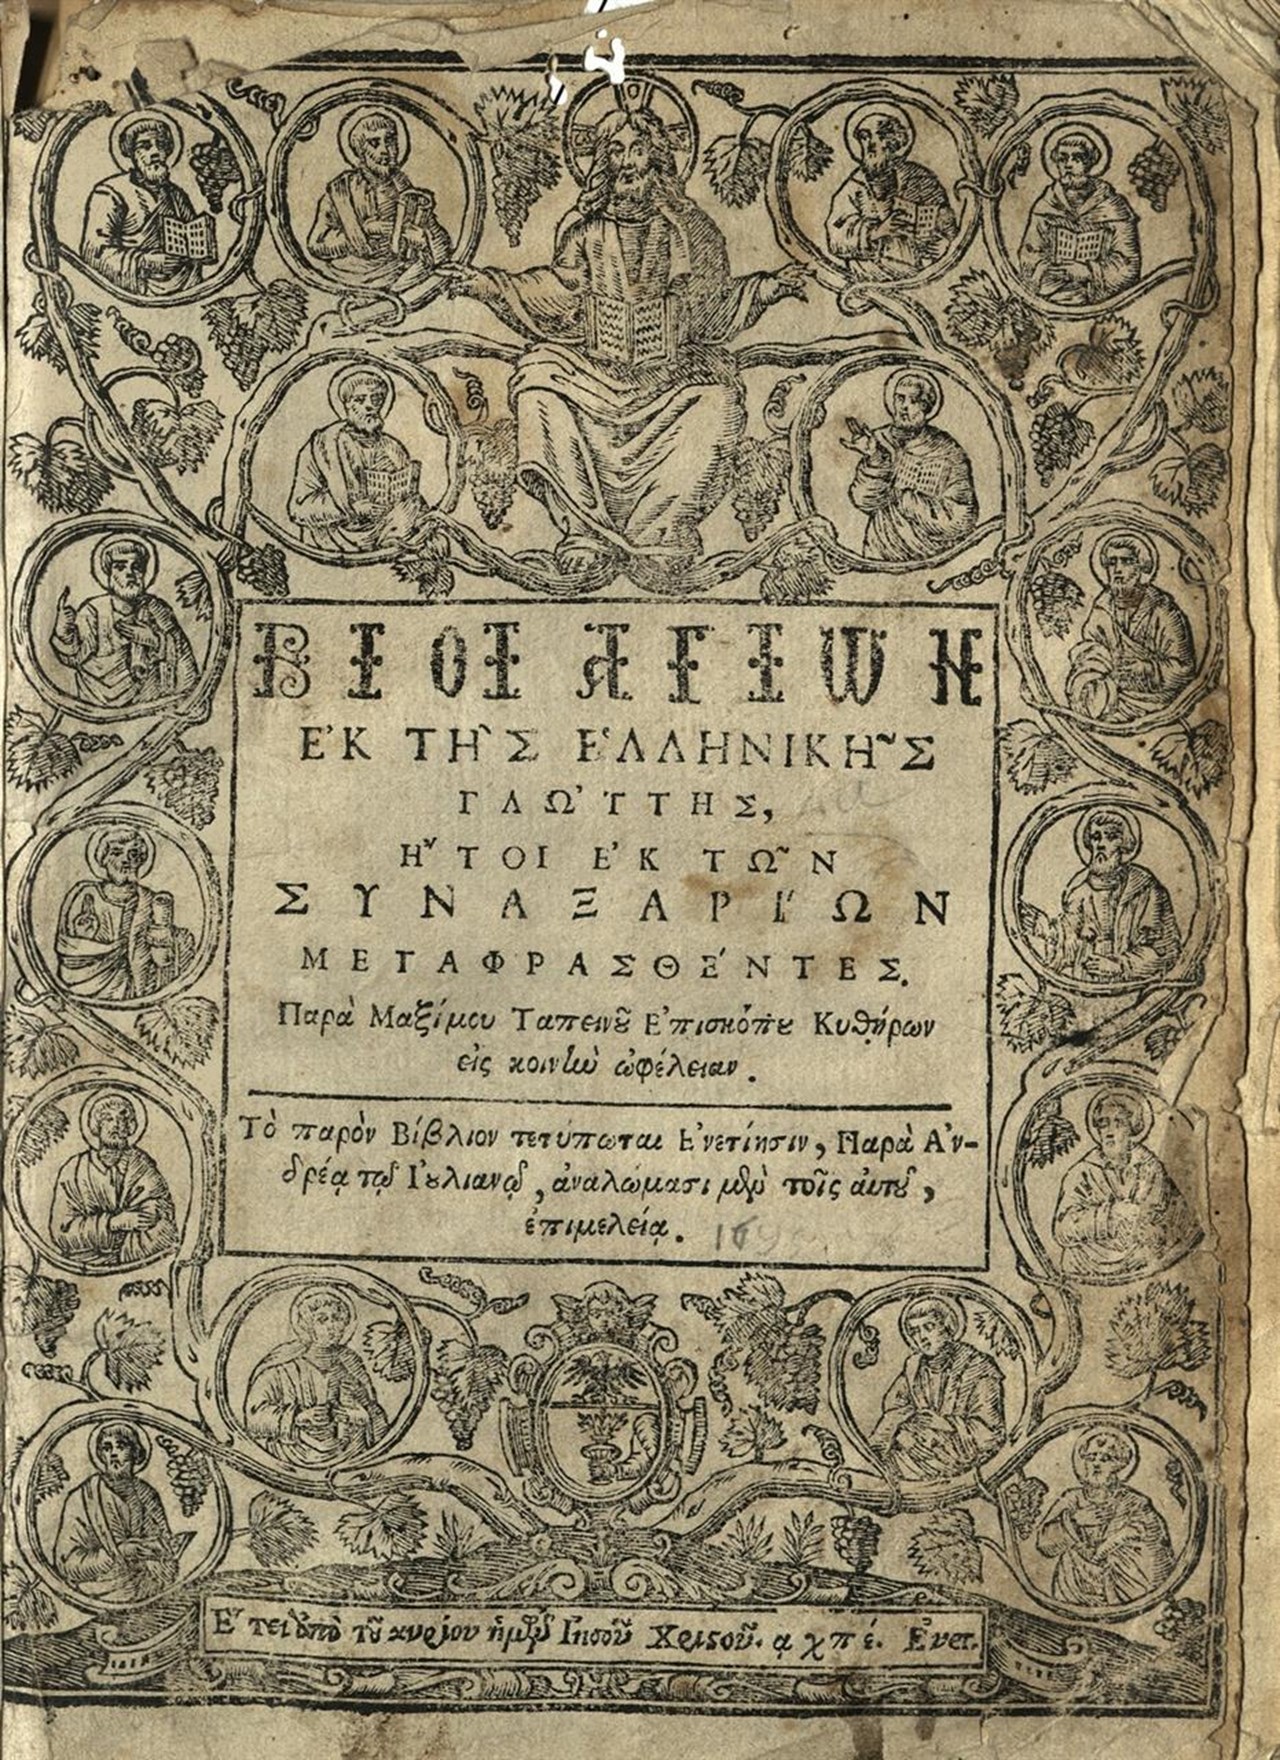 ΒΙΟΙ ΑΓΙΩΝ
Ε᾿Κ ΤΗ͂Σ Ε῾ΛΛΗΝΙΚΗ͂Σ
ΓΛΩ΄ΤΤΗΣ,
Η῎ΤΟΙ Ε᾿Κ ΤΩ͂Ν
ΣΥΝΑΞΑΡΙ΄ΩΝ
ΜΕΤΑΦΡΑΣΘΕ΄ΝΤΕΣ.
Παρὰ Μαξίμου Ταπεινοῦ Ε᾿πισκόπου Κυθήρων
εἰς κοινὴν ὠφέλειαν.
Τὸ παρὸν Βίβλιον τετύπωται Ε᾿νετίησιν, Παρὰ Α᾿ν-
δρέᾳ τῷ Ι᾿ουλιανῷ, ἀναλώμασι μὲν τοῖς αὐτοῦ,
ἐπιμελείᾳ.
Ε῎τει ἀπὸ τοῦ κυρίου ἡμῶν Ιησοῦ Χριστοῦ. α χ π έ. Ε᾿νετ.